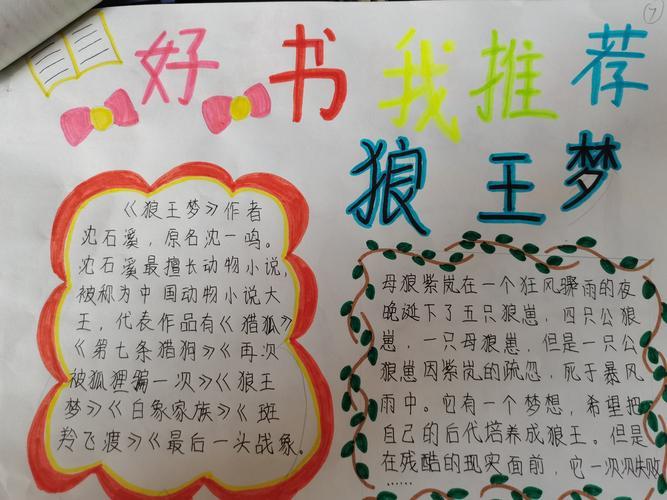 7
好书我推荐
狼王梦
《狼王梦》作者
沈石溪,原名沈一鸣。
沈石溪最擅长动物小说,
被称为中国动物小说大
王,代表作品有《猎狐》
《第七条猎狗》《再次
被狐狸骗一次》《狼王
梦》《白象家族》《斑
羚飞渡》《最后一头战象。
母狼紫岚在一个狂风骤雨的夜
晚诞下了五只狼崽,四只公狼
崽,一只母狼崽,但是一只公
狼崽因紫岚的疏忽,死于暴风
雨中。它有一个梦想,希望把
自己的后代培养成狼王。但是
在残酷的现实面前,它一次次失败
......